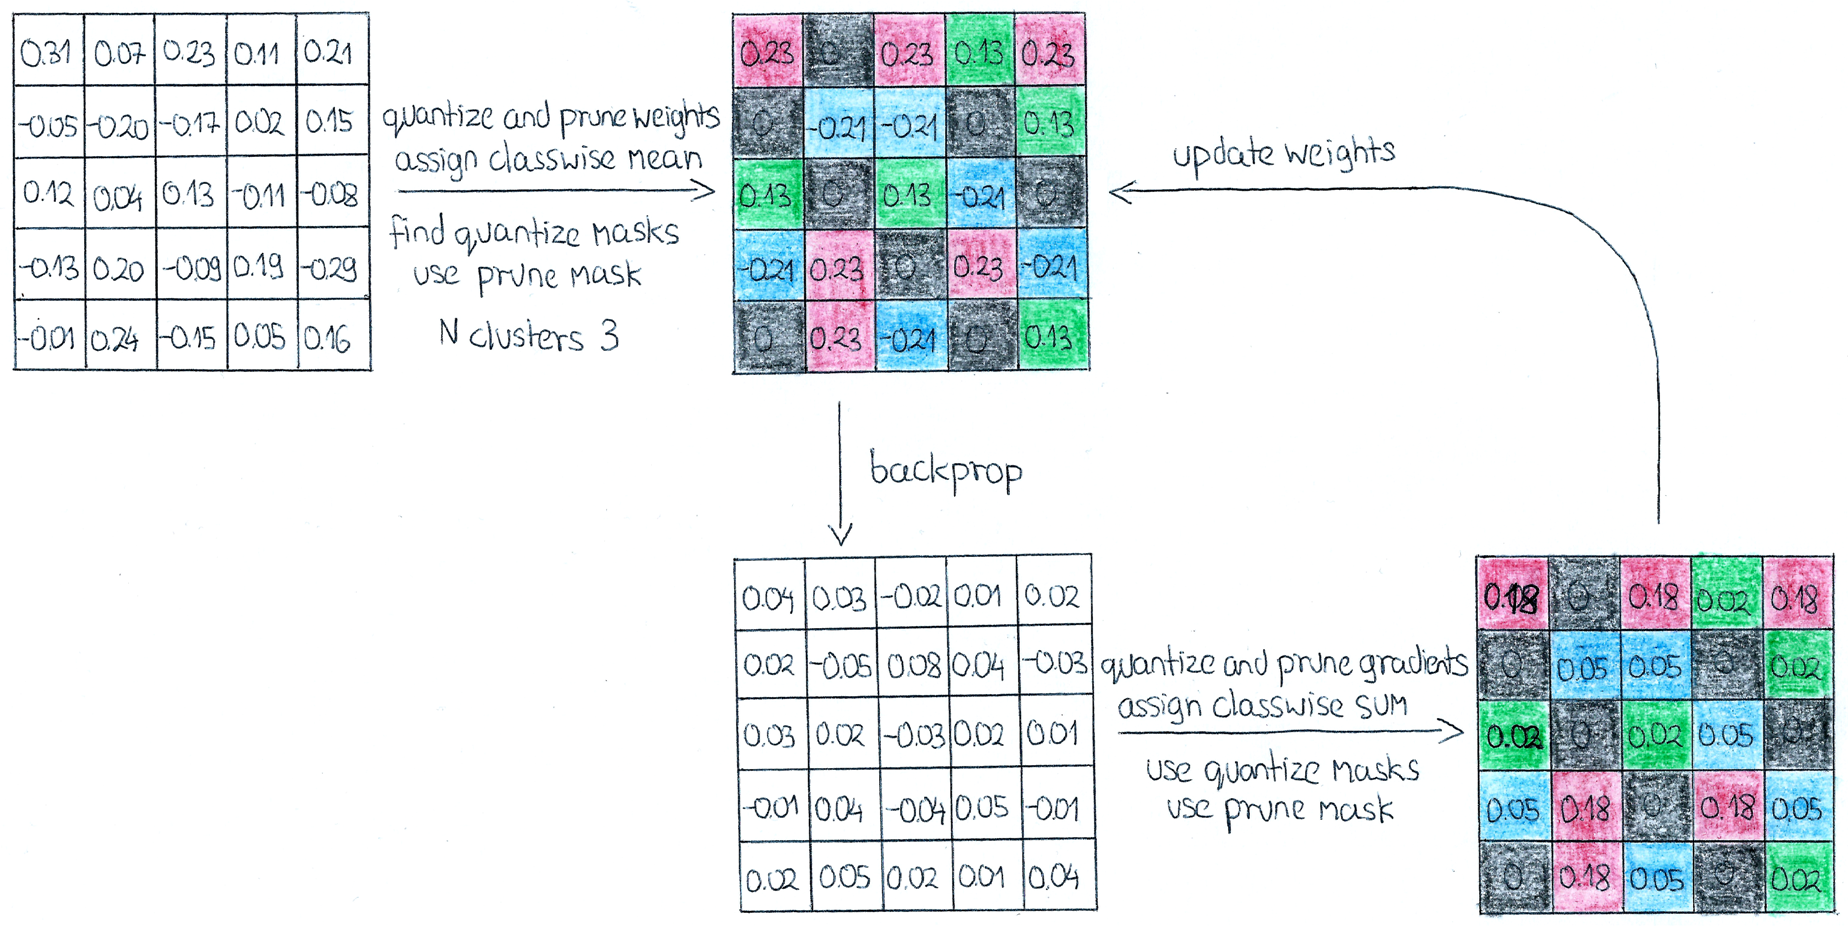 0.31 0.07 0.23 0.11 0.21
-0.05 -0.20 -0.17 0.02 0.15
0.12 0.04 0.13 -0.11 -0.08
-0.13 0.20 -0.09 0.19 -0.29
-0.01 0.24 -0.15 0.05 0.16
quantize and prune weights
assign classwise mean
find quantize masks
use prune mask
N clusters 3
0.23 0 0.23 0.13 0.23
0 -0.21 -0.21 0 0.13
0.13 0 0.13 -0.21 0
-0.21 0.23 0 0.23 -0.21
0 0.23 -0.21 0 0.13
update weights
backprop
0.04 0.03 -0.02 0.01 0.02
0.02 -0.05 0.08 0.04 -0.03
0.03 0.02 -0.03 0.02 0.01
-0.01 0.04 -0.04 0.05 -0.01
0.02 0.05 0.02 0.01 0.04
quantize and prune gradients
assign classwise SUM
use quantize masks
use prune mask
0.18 0 0.18 0.02 0.18
0 0.05 0.05 0 0.02
0.02 0 0.02 0.05
0.05 0.18 0 0.18 0.05
0 0.18 0.05 0 0.02